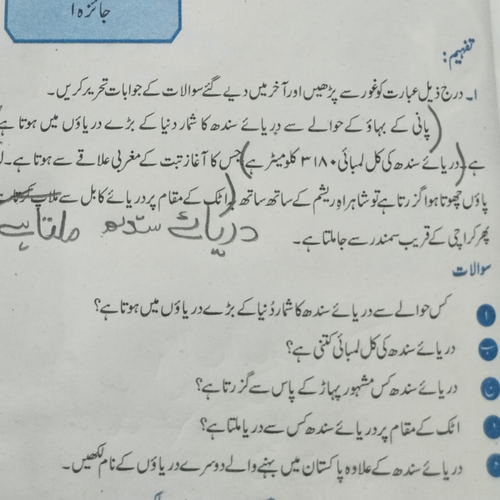 جائزہ ۱
تفہیم:
۱۔ درج ذیل عبارت کو غور سے پڑھیں اور آخر میں دیے گئے سوالات کے جوابات تحریر کریں۔
(پانی کے بہاؤ کے حوالے سے دریائے سندھ کا شمار دنیا کے بڑے دریاؤں میں ہوتا ہے
ہے (دریائے سندھ کی کل لمبائی ۳۱۸۰ کلومیٹر ہے) جس کا آغاز تبت کے مغربی علاقے سے ہوتا ہے۔
پاؤں چھوتا ہوا گزرتا ہے تو شاہراہِ ریشم کے ساتھ ساتھ (اٹک کے مقام پر دریائے کابل سے
دریائے سندھ ملتا ہے
پھر کراچی کے قریب سمندر سے جا ملتا ہے۔
سوالات
ا کس حوالے سے دریائے سندھ کا شمار دُنیا کے بڑے دریاؤں میں ہوتا ہے؟
ب دریائے سندھ کی کل لمبائی کتنی ہے؟
دریائے سندھ کس مشہور پہاڑ کے پاس سے گزرتا ہے؟
اٹک کے مقام پر دریائے سندھ کس سے دریا ملتا ہے؟
دریائے سندھ کے علاوہ پاکستان میں بہنے والے دوسرے دریاؤں کے نام لکھیں۔